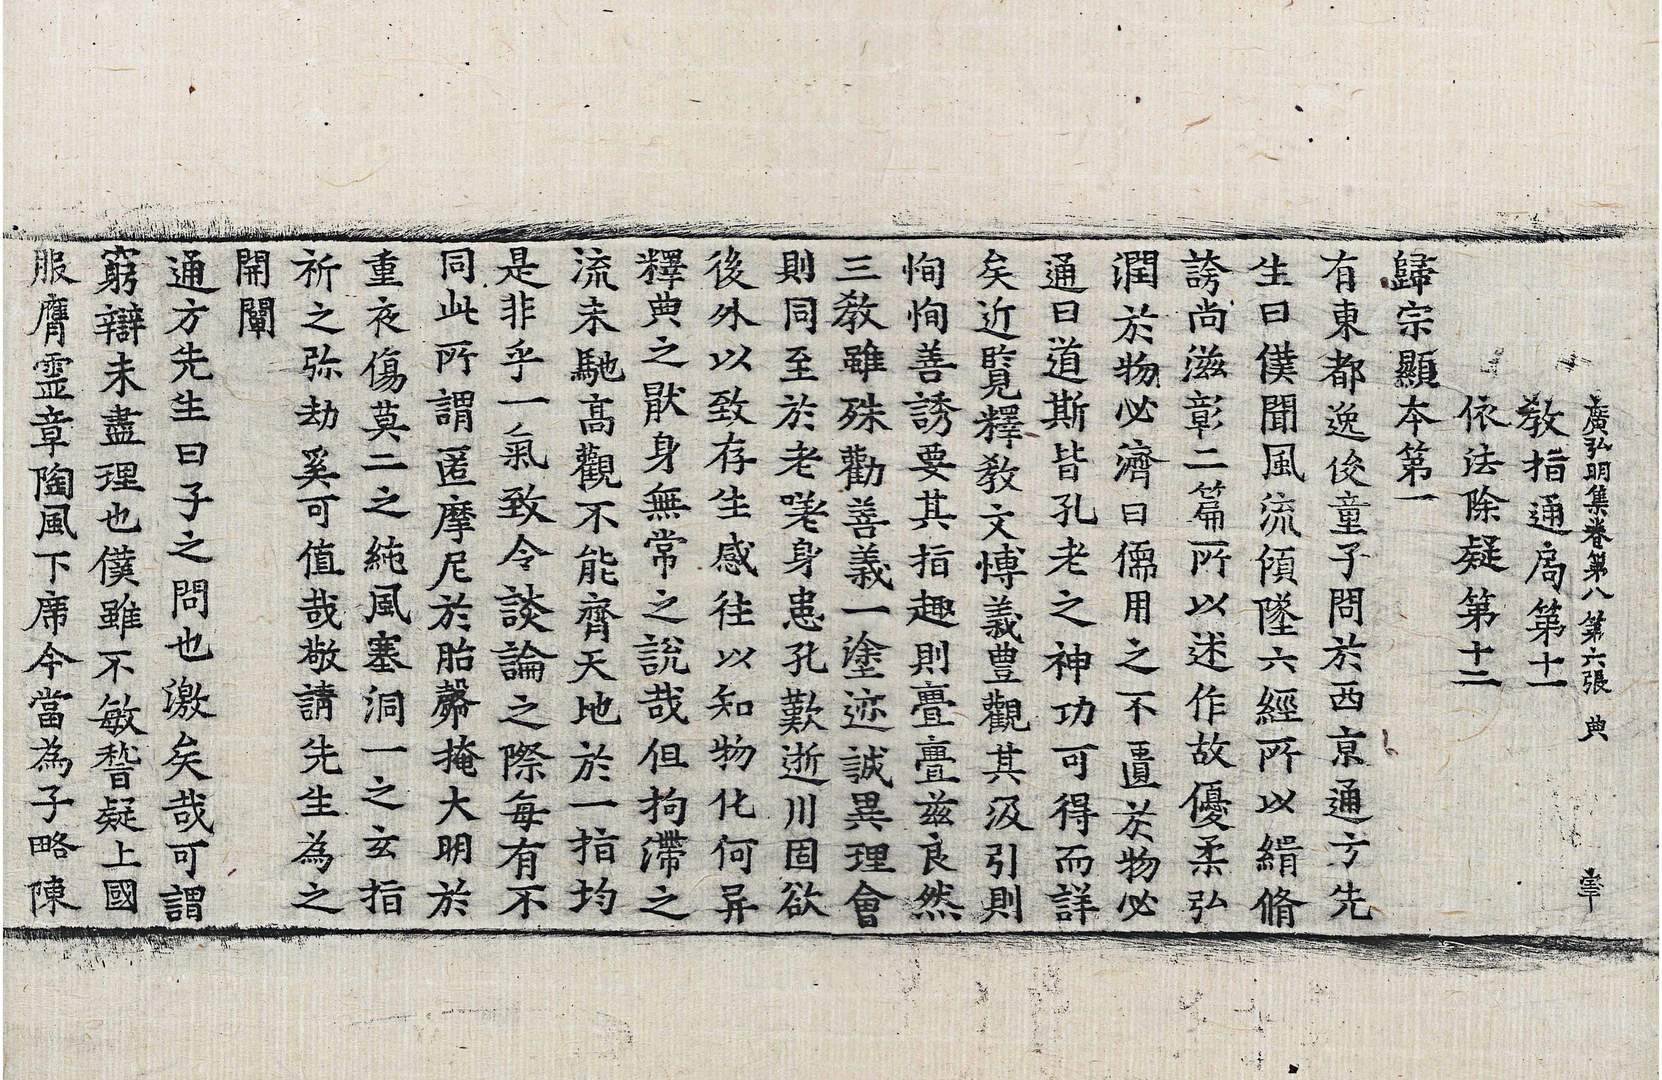 廣弘明集卷第八 第六張 典
教指通局第十一
依法除疑第十二
歸宗顯本第一
有東都逸俊童子問於西京通方先
生曰僕聞風流傾墜六經所以緝脩
誇尚滋彰二篇所以述作故優柔弘
潤於物必濟曰儒用之不遺於物必
通曰道斯皆孔老之神功可得而詳
矣近覽釋教文博義豊觀其汲引則
恂恂善誘要其指趣則亹亹茲良然
三教雖殊勸善義一塗迹誠異理會
則同至於老嗟身患孔歎逝川固欲
後外以致存生感往以知物化何异
釋典之猒身無常之說哉但拘滯之
流未馳高觀不能齊天地於一指均
是非乎一氣致令談論之際每有不
同此所謂匿摩尼於胎㲉掩大明於
重夜傷莫二之純風塞洞一之玄指
祈之弥劫奚可值哉敬請先生為之
開闡
通方先生曰子之問也激矣哉可謂
窮辯未盡理也僕雖不敏稽疑上國
服膺靈章陶風下席今當為子略陳